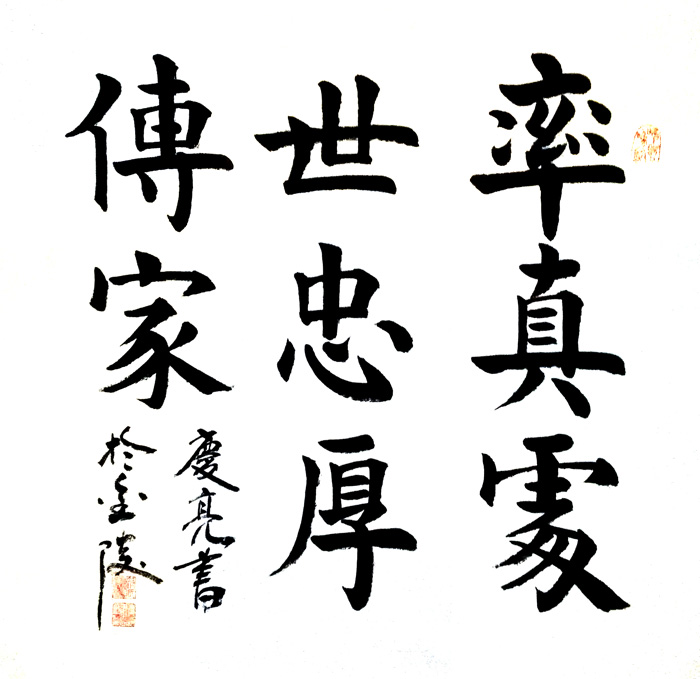 率真處
世忠厚
傳家
慶亮書
於金陵